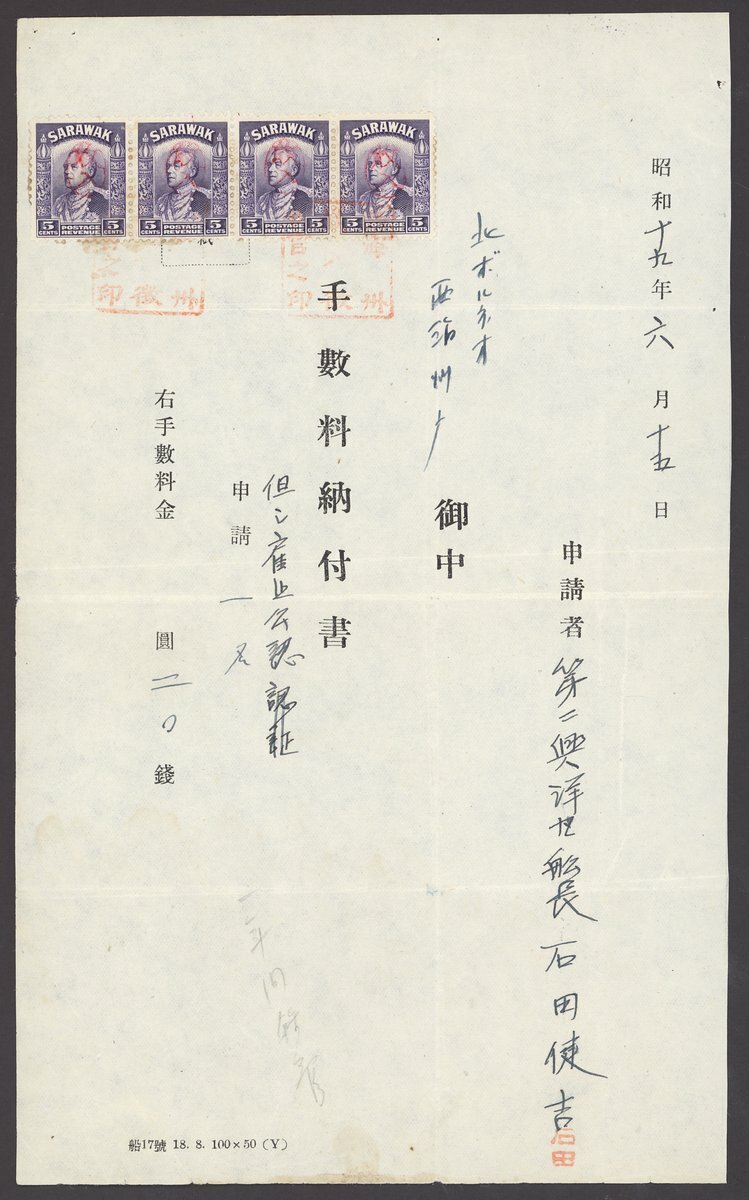 昭和十九年六月十五日
申請者 第二興洋丸船長 石田健吉
石田
北ボルネオ
西海州庁
御中
手數料納付書
但シ雇止公認認証
申請一名
右手數料金 圓二〇錢
SARAWAK
5 CENTS POSTAGE REVENUE 5 CENTS
SARAWAK
5 CENTS POSTAGE REVENUE 5 CENTS
SARAWAK
5 CENTS POSTAGE REVENUE 5 CENTS
SARAWAK
5 CENTS POSTAGE REVENUE 5 CENTS
船17號 18. 8. 100×50 (Y)